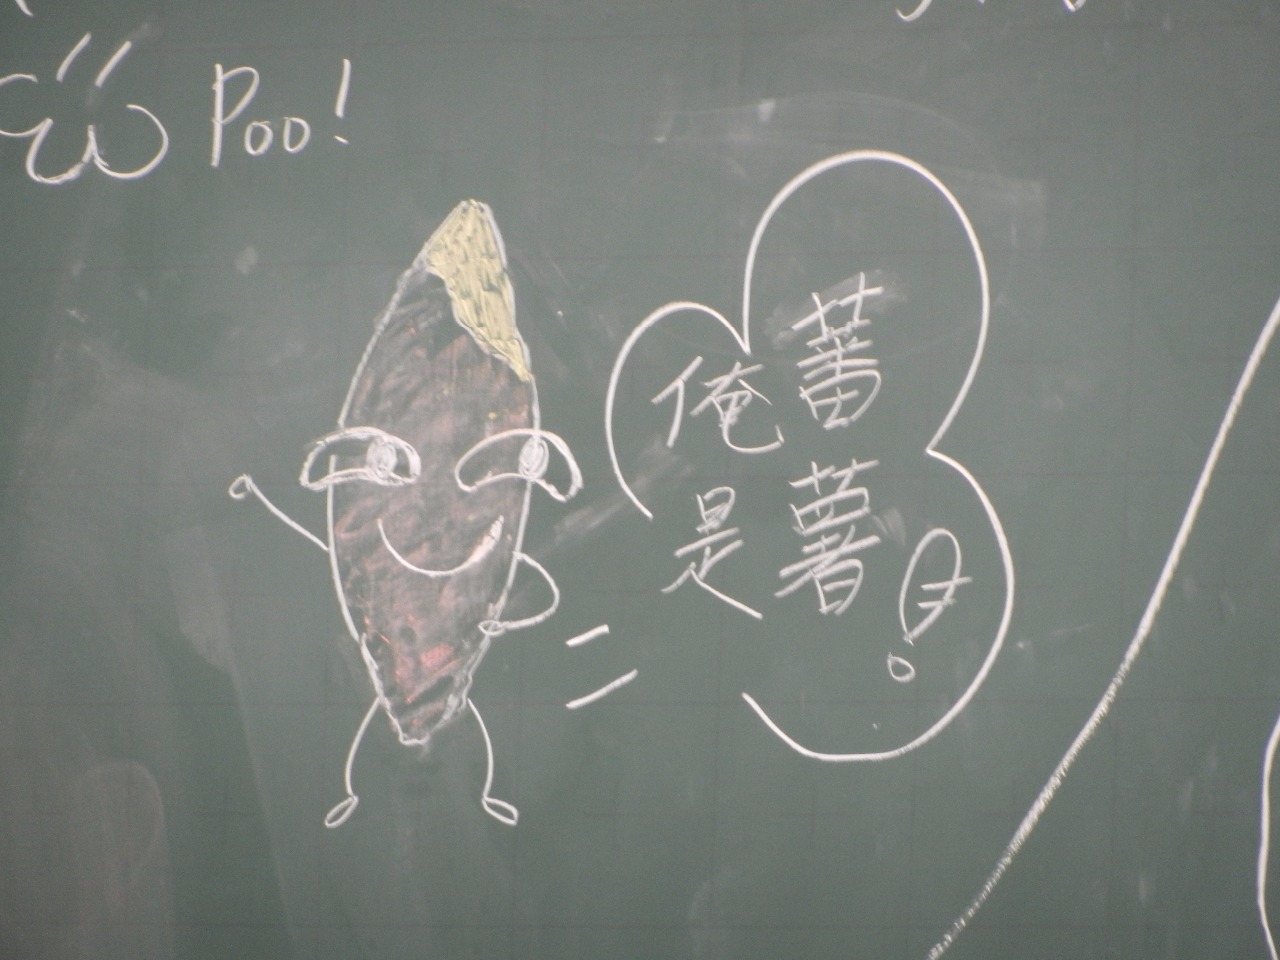 Poo!
俺是
蕃薯